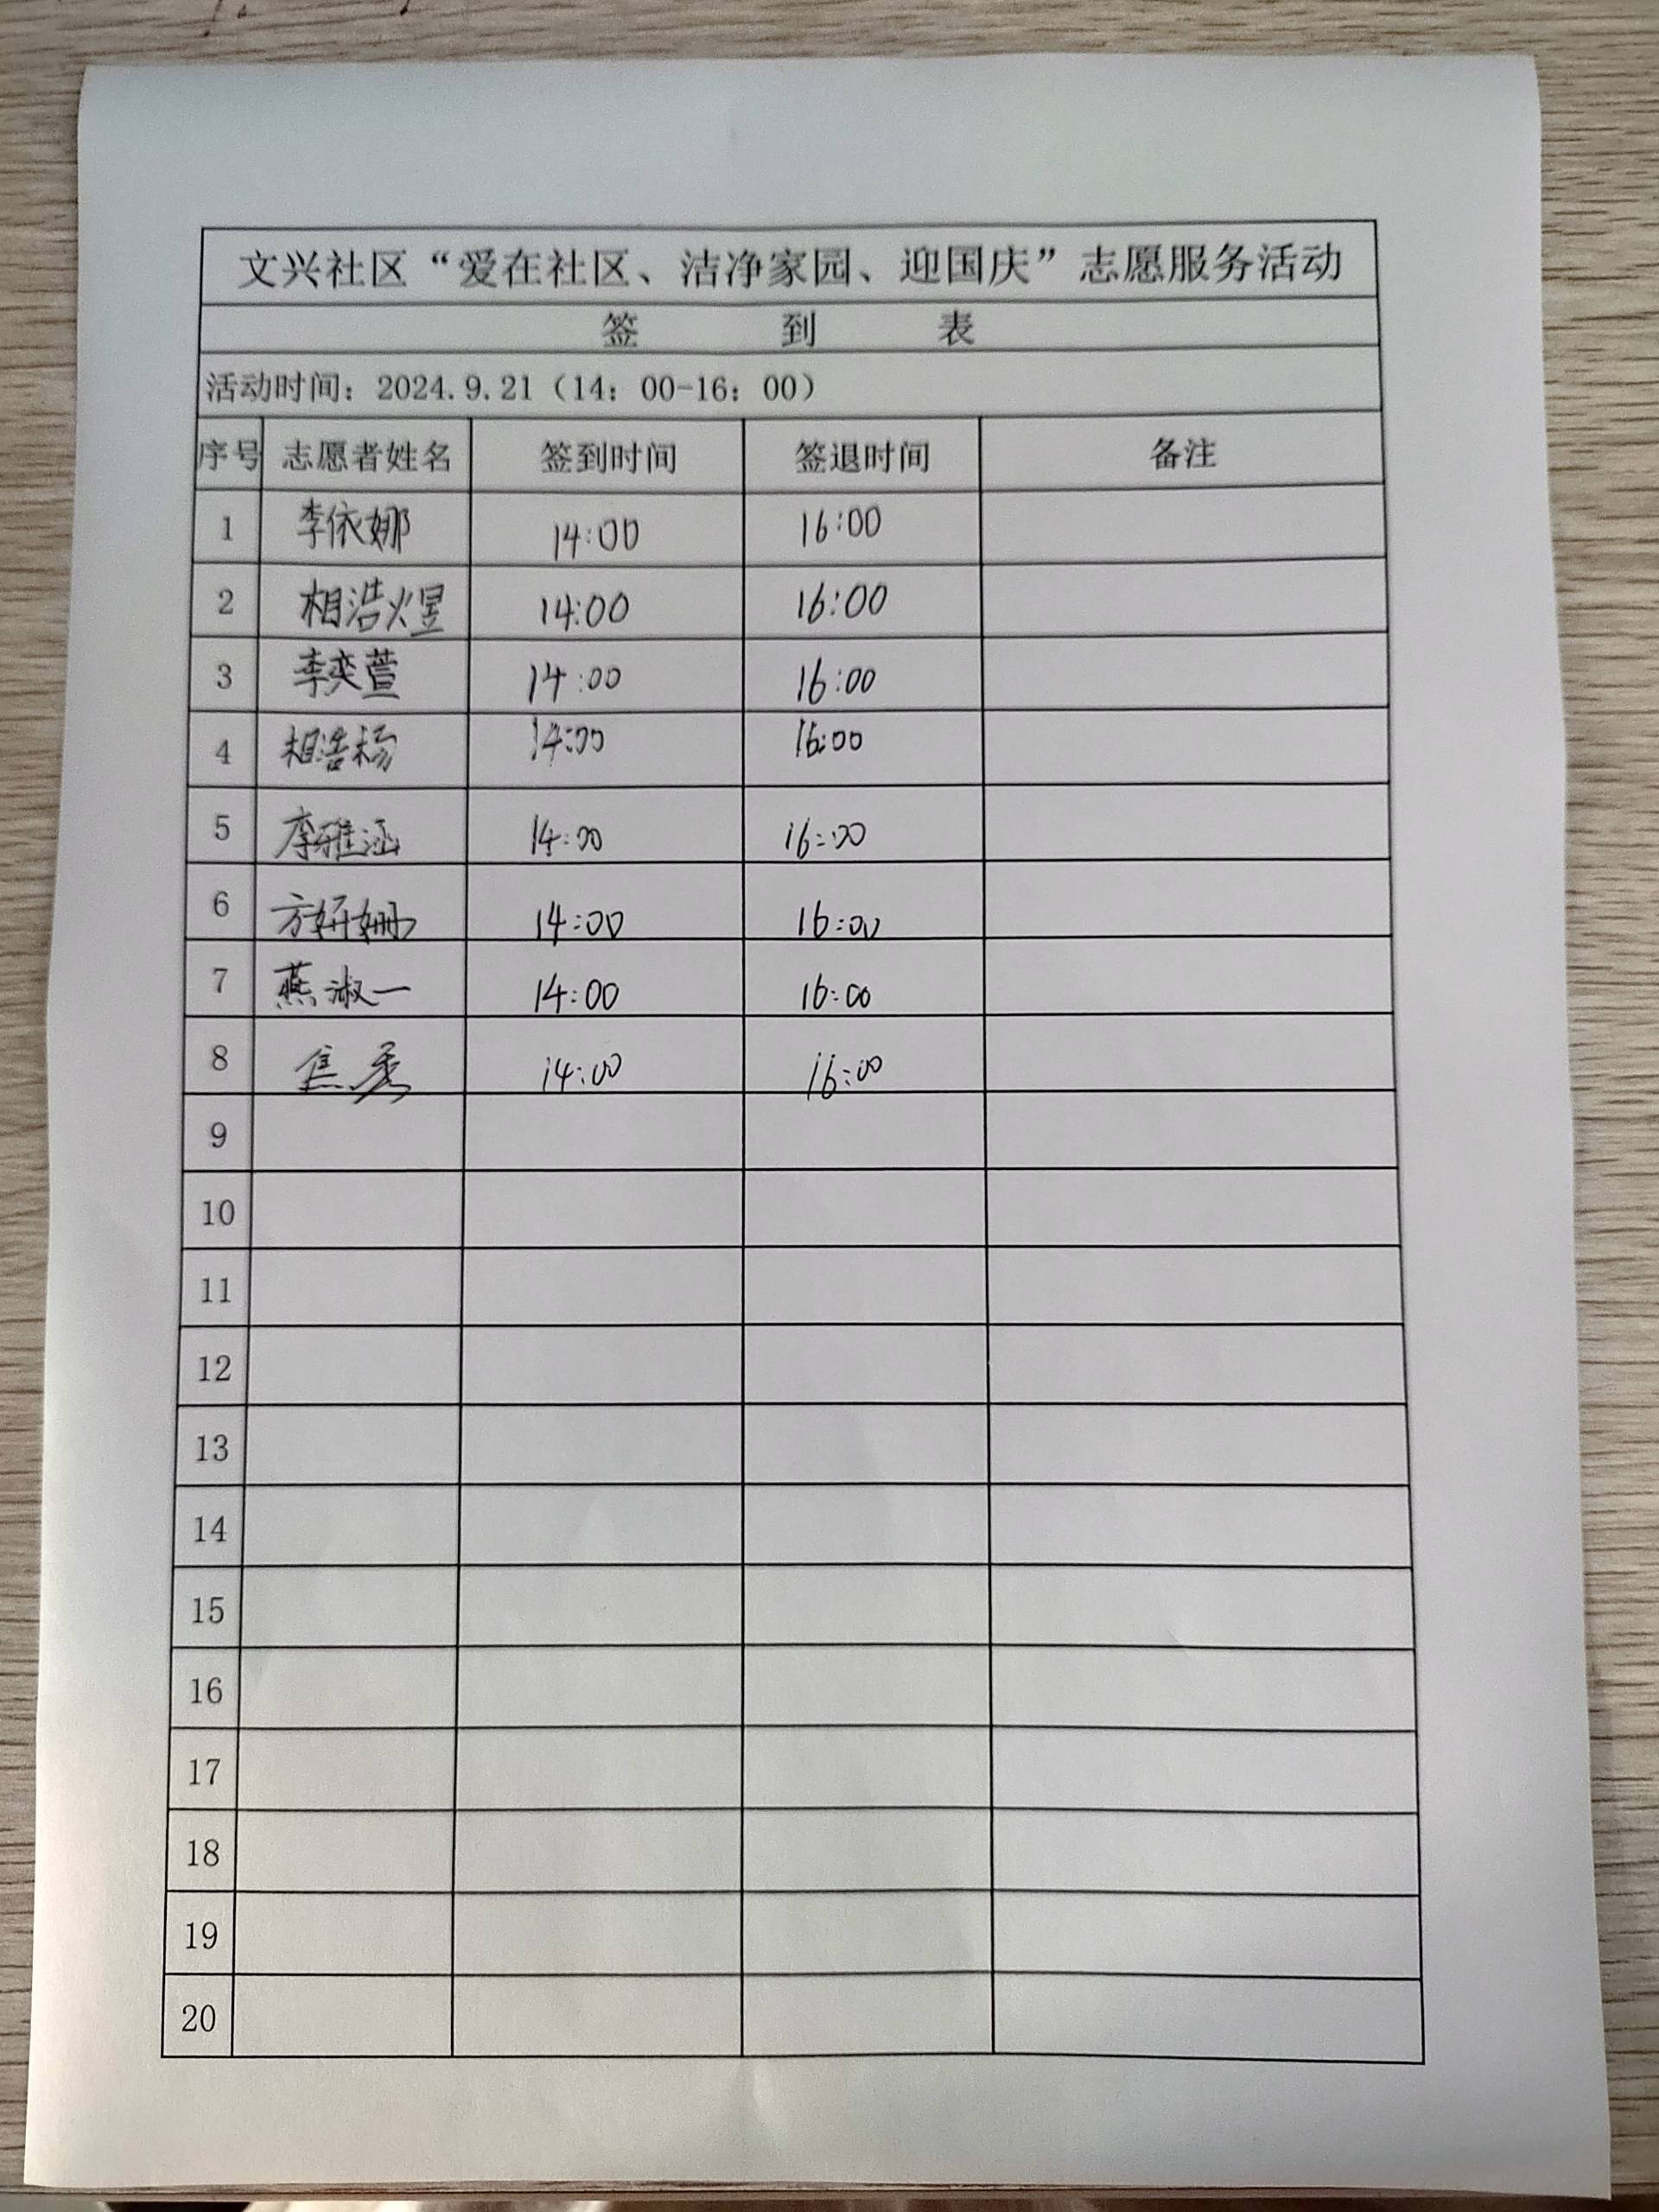 文兴社区“爱在社区、洁净家园、迎国庆”志愿服务活动
签 到 表
活动时间：2024.9.21（14：00-16：00）
序号 志愿者姓名 签到时间 签退时间 备注
1 李依娜 14:00 16:00
2 相浩煜 14:00 16:00
3 李奕萱 14:00 16:00
4 相浩杨 14:00 16:00
5 李雅涵 14:00 16:00
6 方妍姗 14:00 16:00
7 燕淑一 14:00 16:00
8 焦秀 14:00 16:00
9
10
11
12
13
14
15
16
17
18
19
20